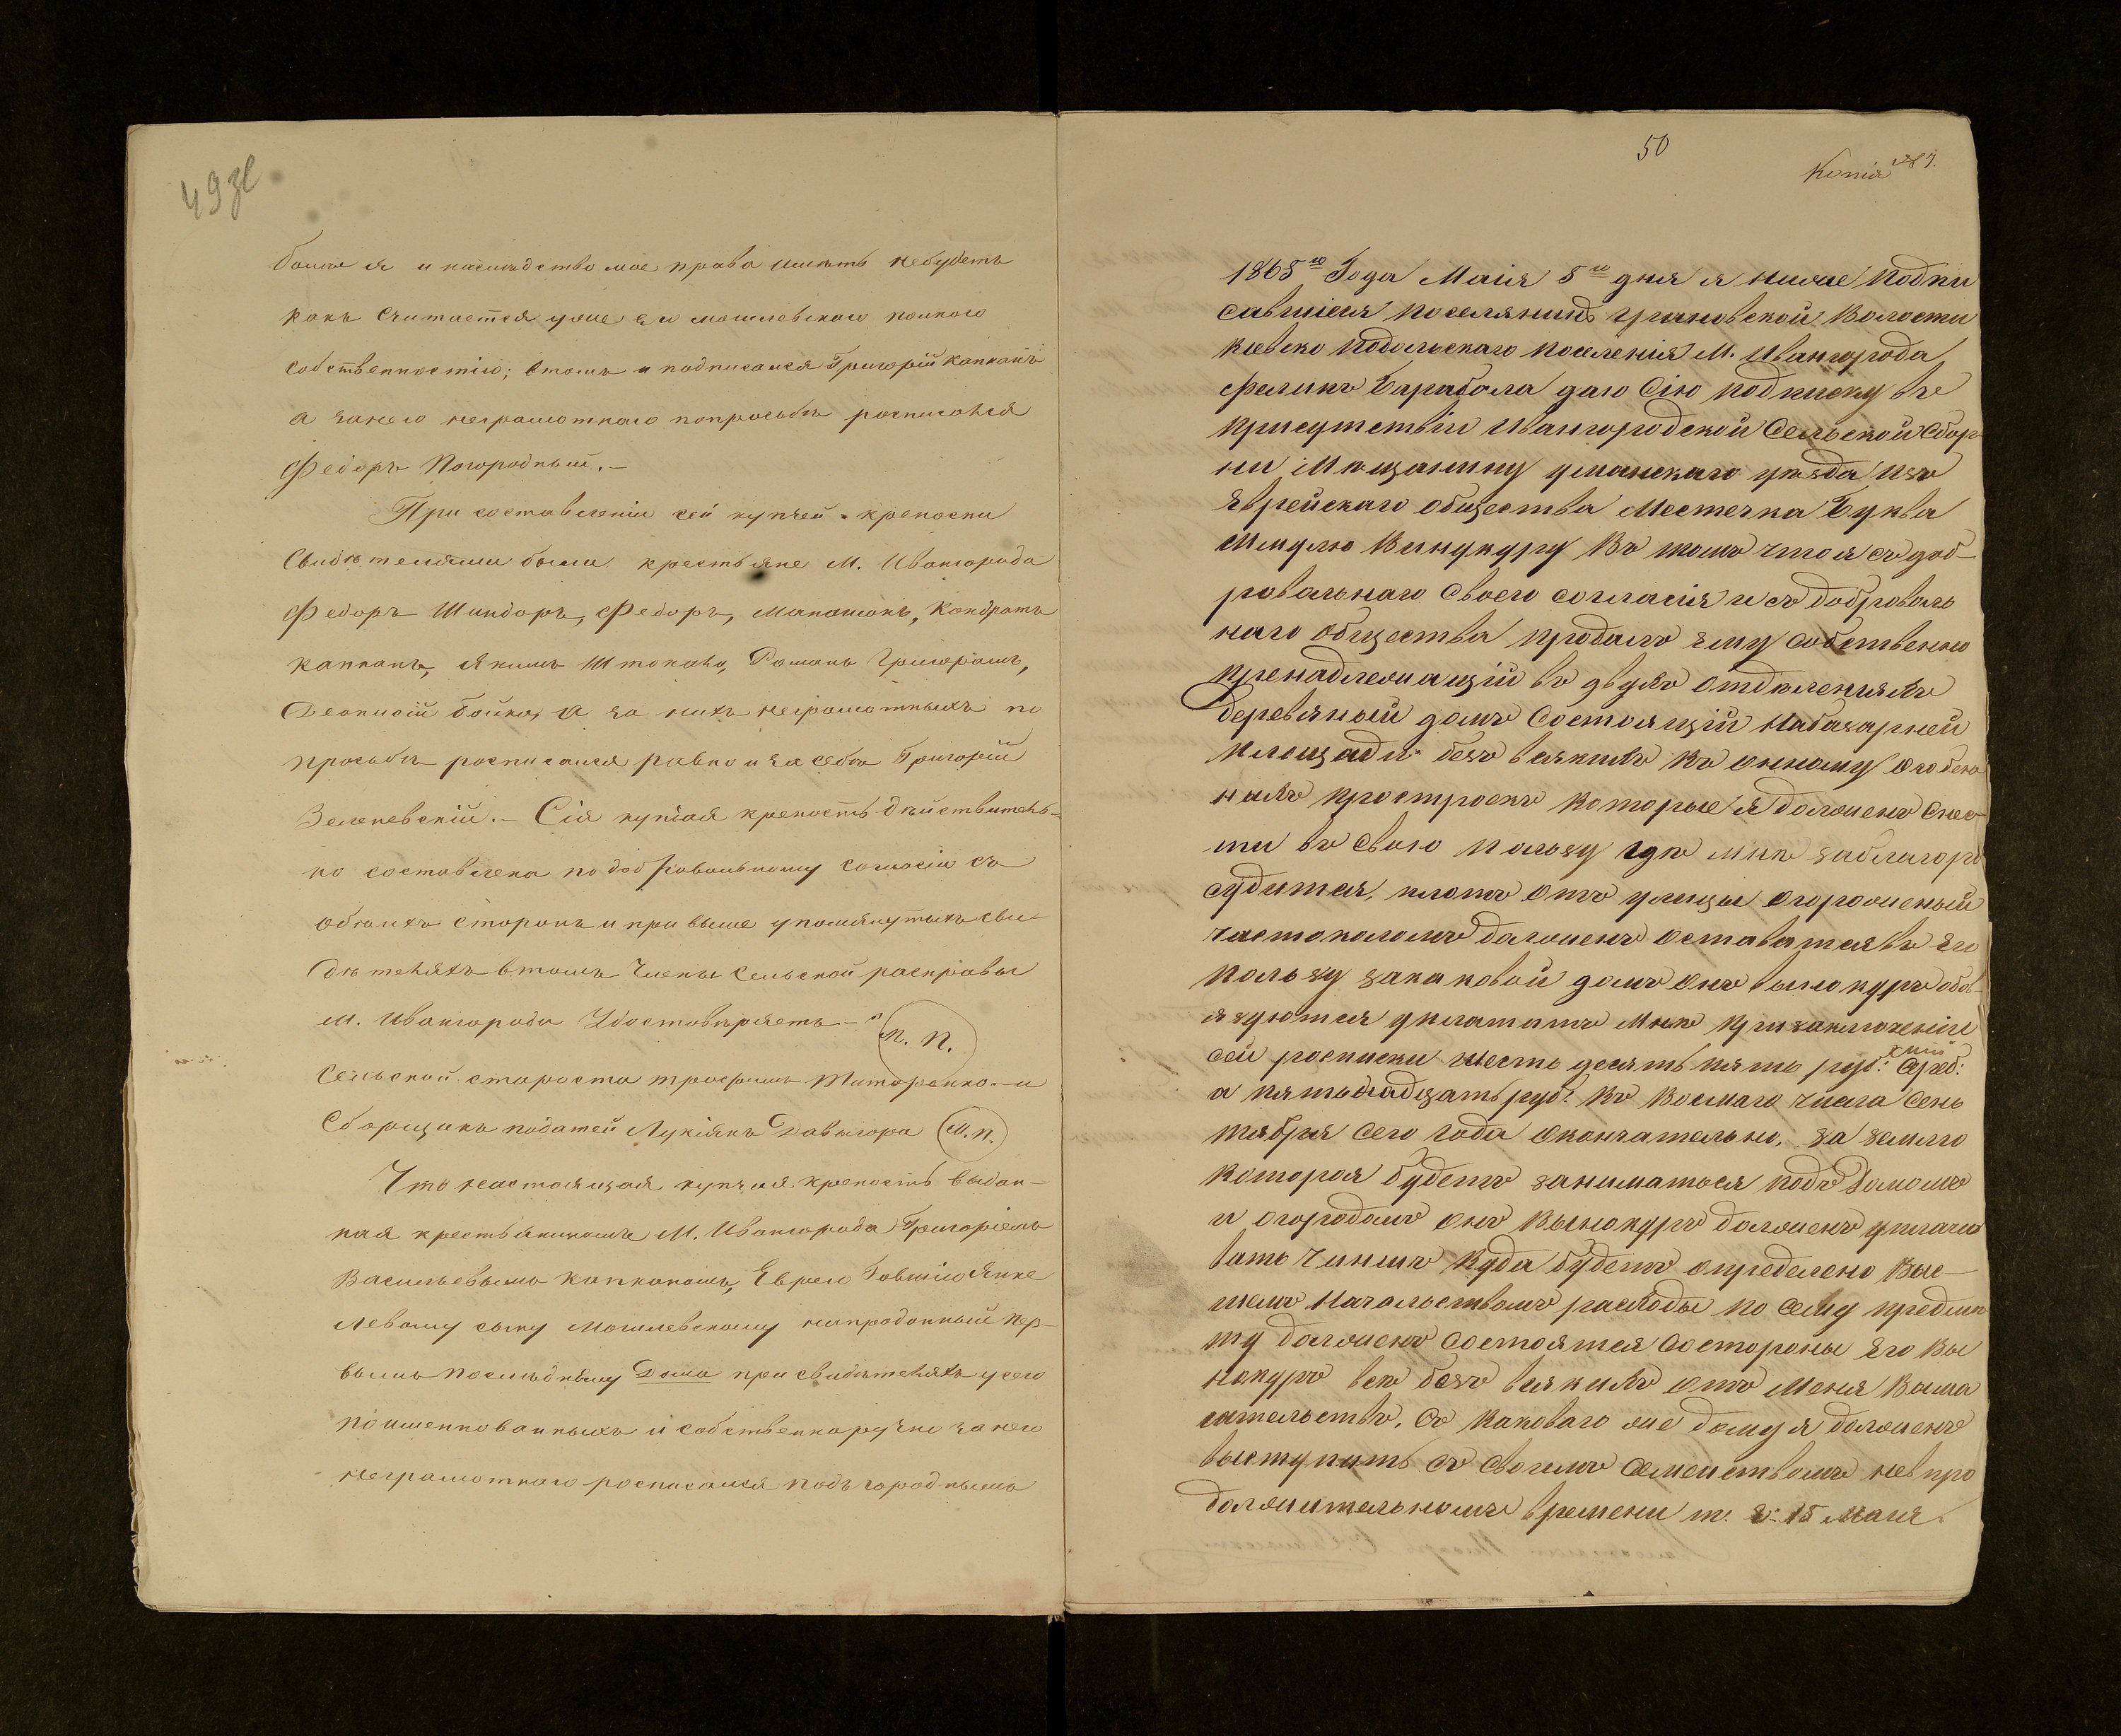 49 зв
более я и наследство мое права иметь небудетъ
какъ считается уже его мошлевскаго полного
собственностію; втомъ и подписался Григорій Капканъ
а занего неграмотнаго попросьбѣ росписался
Федоръ Погородный.-
При составленіи сей купчей крепости
Свидѣтелями были крестьяне М. Ивангорода
Федоръ Шиндоръ, Федоръ, Кондратъ
Капканъ, Якимъ Романъ
Бойко, а за нихъ неграмотныхъ по
просьбѣ росписался равно и засебя Григорій
Зеленевскій.- Сія купчая крепость дѣйствитель-
но составлена подобровольному согласію съ
обоихъ сторонъ и при выше упомянутыхъ сви-
дѣтеляхъ втомъ Члены Сельской расправы
М. Ивангорода Удостовѣряетъ -
М. П.
Сельской староста трофимъ Титаренко.- и
Сборщикъ податей Лукіянъ Давыгора М. п.
Что настоящая купчая крепость выдан-
ная крестьяниномъ М. Ивангорода Григоріемъ
Васильевымъ Капканомъ, Еврею Говшію Янке
левому сыну Мошлевскому напроданный пер-
вымъ последнему Дома при свидѣтеляхъ усего
поименнованныхъ и собственноручно занего
неграмотнаго росписался подъгороднымъ
50
Копія
1865го Года Маія 5го дня я ниже подпи
савшійся поселянинъ грановской Волости
Кіевско подольскаго поселенія М. Ивангорода
Феликъ Барабола даю Сію подписку въ
присутствіи Ивангородской Сельской Сбор-
ни Мѣщанину уманскаго уезда изъ
Еврейскаго общества Местечка Букъва
Шмулю Винукуру Въ томъ что я съ доб-
ровольнаго Своего согласія и съ доброволь
наго общества продалъ ему собственно
пренадлежащій въ двухъ отдѣленияхъ
деревяный домъ Состоящій набазарней
площади безъ всякихъ къ онному особен
ныхъ простроекъ которые я долженъ снес-
ти въ свою пользу где мнѣ заблагора
судится, плотъ отъ улицы огороженый
частоколомъ долженъ оставатся въ его
пользу закаковой домъ онъ вынокуръ обов-
язуются уплатить мнѣ призаключеніи
сей росписки шесть десять пять руб: Сереб:
а пятьнадцать руб: къ восмаго числа Сень
тября сего года окончательно, за землю
которая будетъ заниматься подъ Домомъ
и огородомъ онъ вынокуръ долженъ уплачи
вать Чиншъ куда будетъ определено Выс-
шемъ Начальствомъ расходы по сему предмѣ
ту долженъ состоятся состороны его Вы
нокуръ все безъ всякихъ отъ меня выма
гательствъ, съ каковаго же дому я долженъ
выступить съ своимъ семействомъ невпро
должительномъ времени т. е: 15 Маія